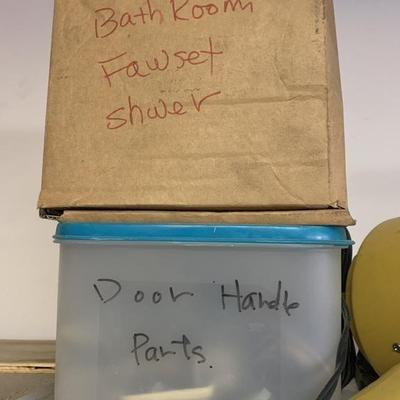 Bath Room
Fawset
shwer
Door Handle
Parts.